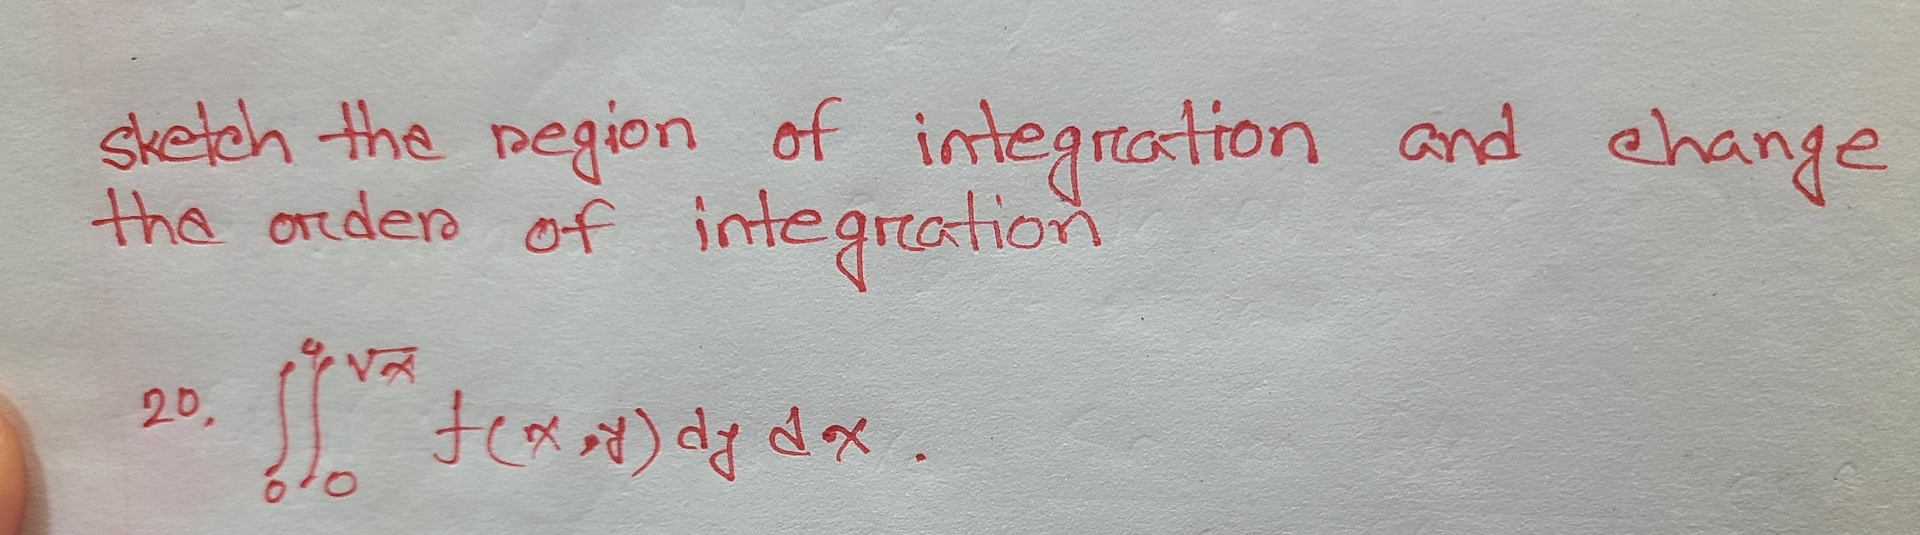 sketch the region of integration and change
the order of integration
20. ∫₀⁴∫₀^√x f(x,y) dy dx.